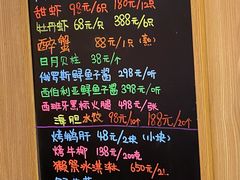 甜虾 98元/6只 180元/12只
牡丹虾 68元/只 388元/6只
醉蟹 88元/1只(熟)
日月贝柱 38元/个
俄罗斯鲟鱼子酱 298元/听
西伯利亚鲟鱼子酱 398元/听
西班牙黑标火腿 498元/张
海胆水饺 98元/10个 188元/20个
烤鹅肝 48元/2块(小块)
烤牛柳 138元/200克
獭祭冰淇淋 650元/2L